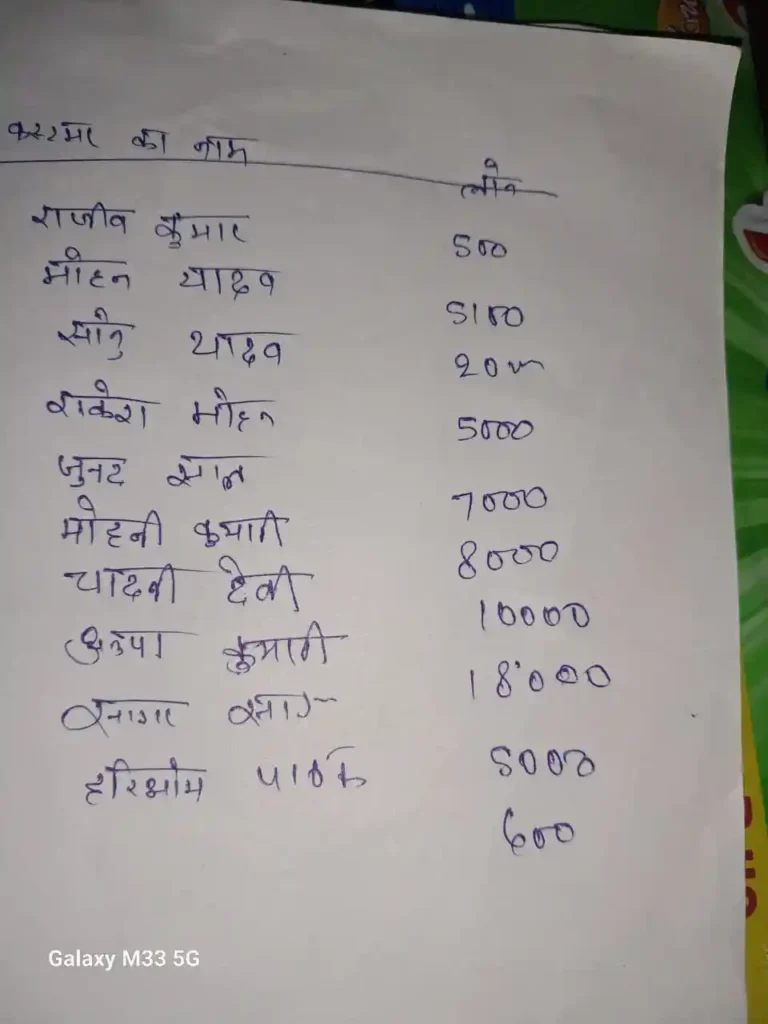 कस्टमर का नाम लोन
राजीव कुमार 500
मोहन यादव 5100
सोनु यादव
राकेश मोहन 5000
7000
मोहनी कुमारी 8000
चादनी देवी 10000
कुमारी 18000
सागर 5000
हरिओम पाठक 600
Galaxy M33 5G